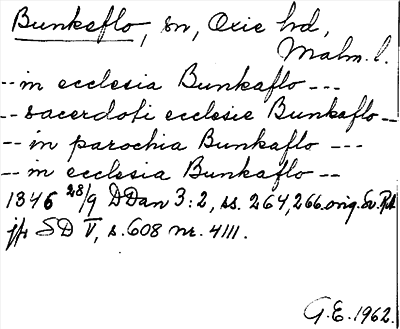 Bunkaflo, sn, Oxie hd,
Malm. l.
-- in ecclesia Bunkaflo ---
-- sacerdoti ecclesie Bunkaflo --
-- in parochia Bunkaflo ---
-- in ecclesia Bunkaflo --
1346 28/9 DDan 3:2, ss. 264, 266. orig. Sv. RA
jfr SD V, s. 608 nr. 4111.
G.E. 1962.